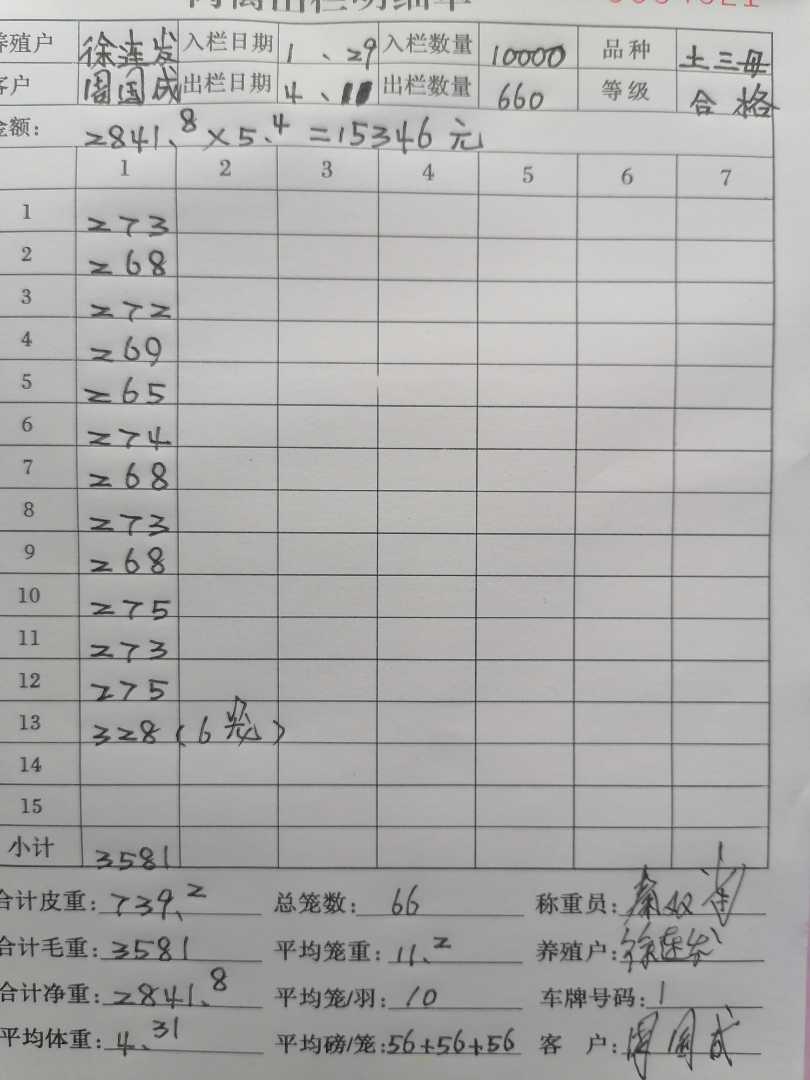 养殖户 徐连发 入栏日期 1、29 入栏数量 10000 品种 土三母
客户 周国成 出栏日期 4、11 出栏数量 660 等级 合格
金额: 2841.8×5.4=15346元
1 2 3 4 5 6 7
1 273
2 268
3 272
4 269
5 265
6 274
7 268
8 273
9 268
10 275
11 273
12 275
13 328(6笼)
14
15
小计 3581
合计皮重: 739.2 总笼数: 66 称重员:
合计毛重: 3581 平均笼重: 11.2 养殖户: 徐连发
合计净重: 2841.8 平均笼/羽: 10 车牌号码: 1
平均体重: 4.31 平均磅/笼: 56+56+56 客 户: 周国成